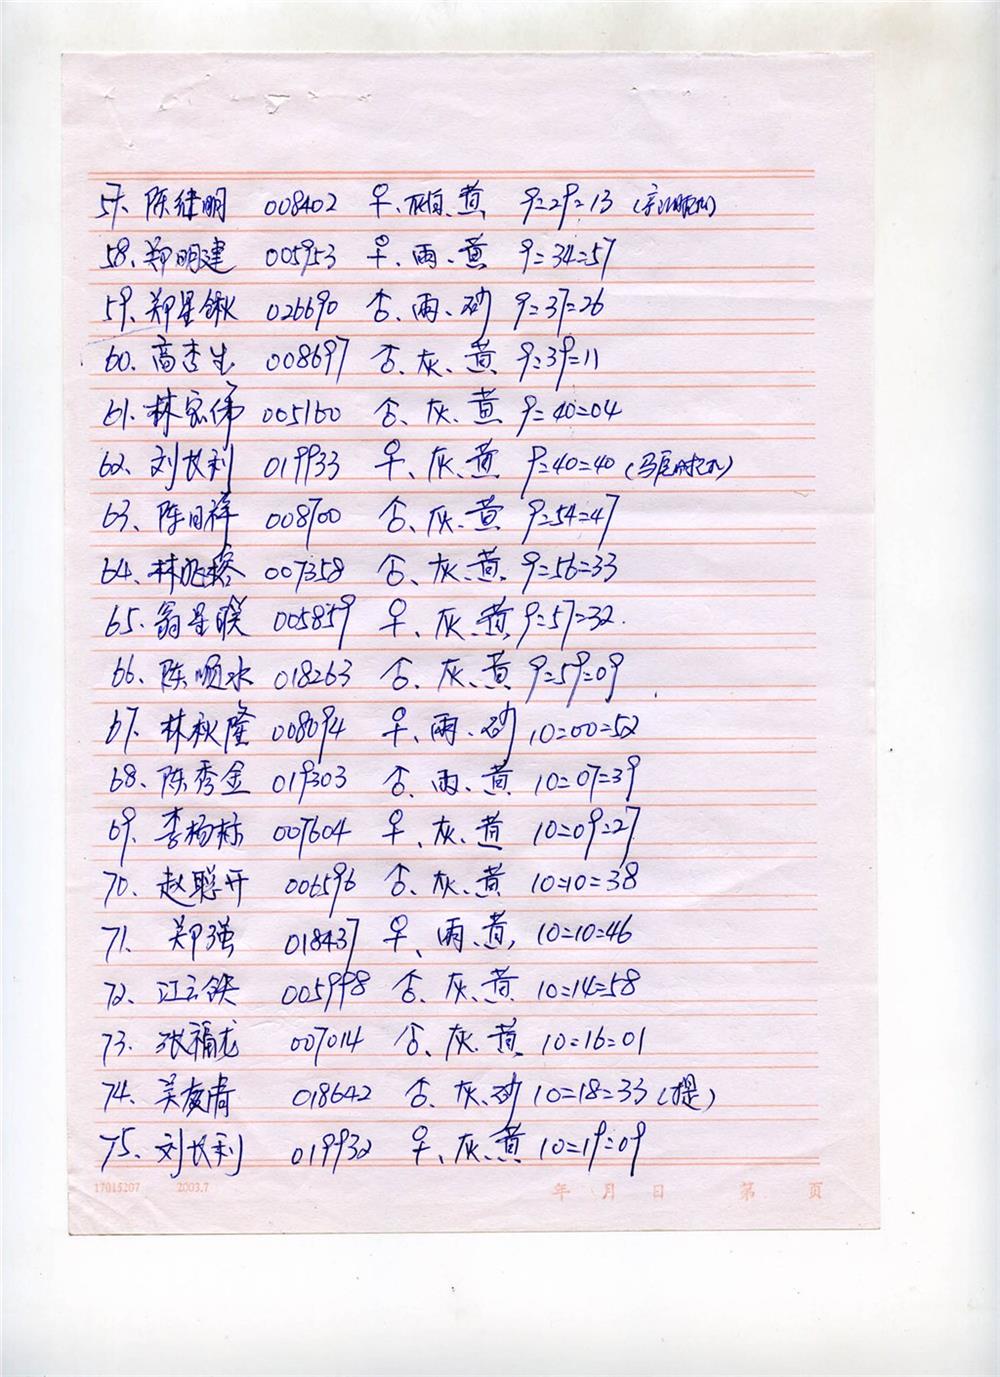 57、陈建明 008402 ♀、灰白、黄 9=29=13
58、郑明建 005953 ♀、雨、黄 9=34=57
59、郑星锹 026690 杏、雨、砂 9=37=26
60、高李生 008697 杏、灰、黄 9=39=11
61、林宏伟 005160 杏、灰、黄 9=40=04
62、刘长利 019933 ♀、灰、黄 9=40=40
63、陈日祥 008700 杏、灰、黄 9=54=47
64、林兆榕 007358 杏、灰、黄 9=56=33
65、翁星联 005859 ♀、灰、黄 9=57=32.
66、陈顺水 018263 杏、灰、黄 9=59=09
67、林秋隆 008094 ♀、雨、砂 10=00=52
68、陈秀金 019303 杏、雨、黄 10=07=39
69、李杨标 007604 ♀、灰、黄 10=09=27
70、赵聪开 006596 杏、灰、黄 10=10=38
71、郑强 018437 ♀、雨、黄、10=10=46
72、江云铁 005998 杏、灰、黄 10=14=58
73、张福龙 007014 杏、灰、黄 10=16=01
74、吴友清 018642 杏、灰、砂 10=18=33（提）
75、刘长利 019932 ♀、灰、黄 10=19=09
17015207 2003.7 年 月 日 第 页